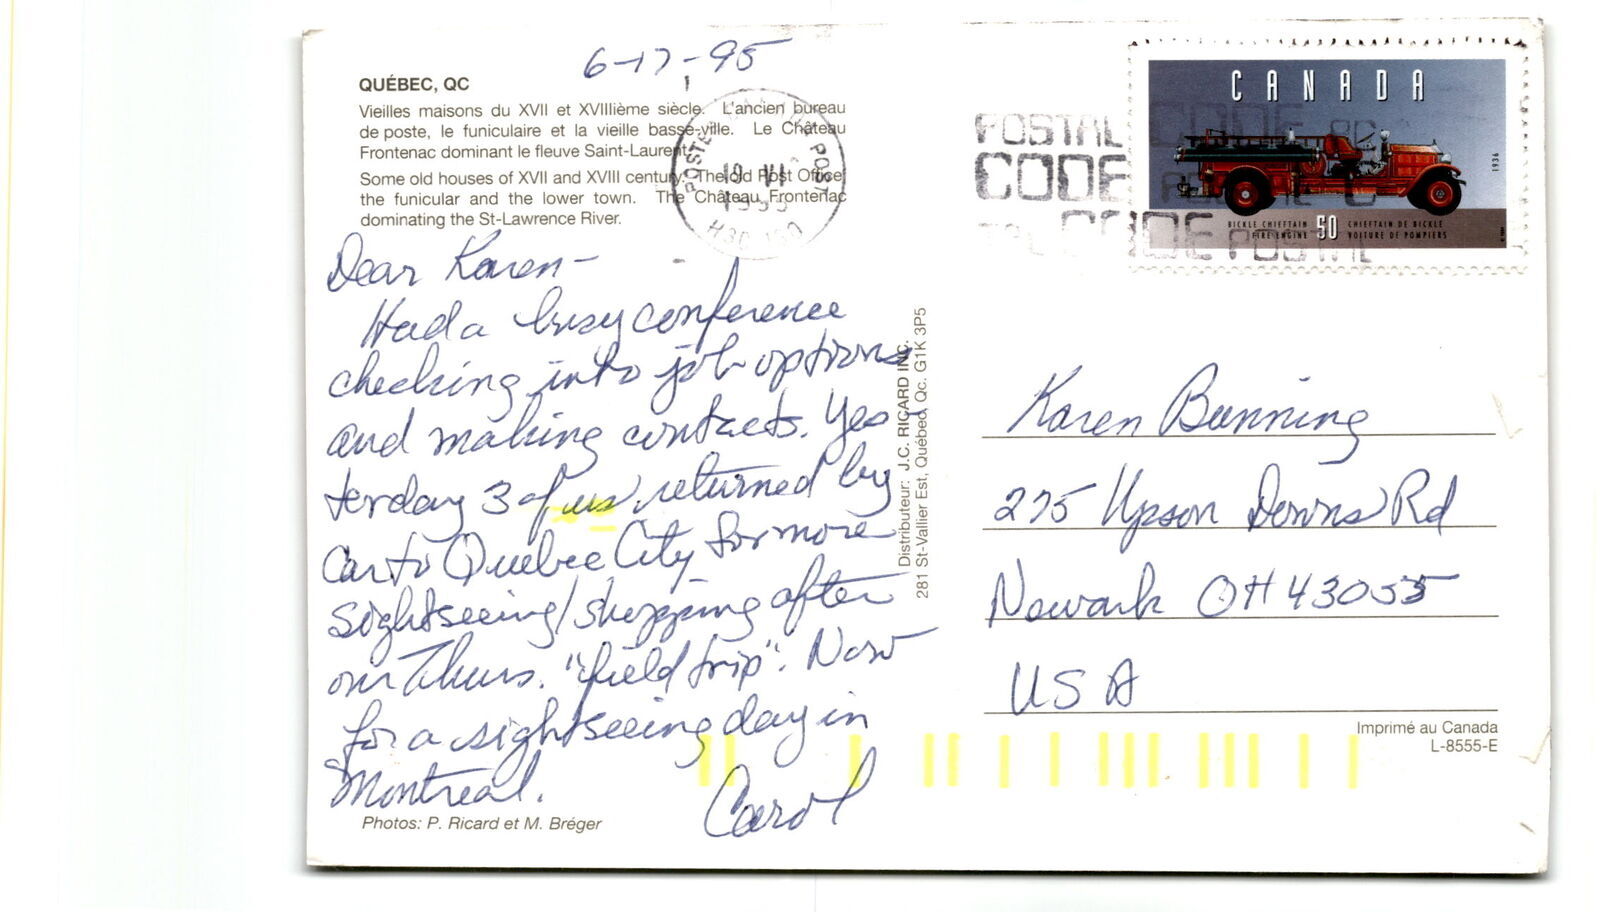 6-17-95
QUÉBEC, QC
Vieilles maisons du XVII et XVIIIième siècle. L'ancien bureau
de poste, le funiculaire et la vieille basse-ville. Le Château
Frontenac dominant le fleuve Saint-Laurent.
Some old houses of XVII and XVIII century. The old Post Office,
the funicular and the lower town. The Château Frontenac
dominating the St-Lawrence River.
Dear Karen-
Had a busy conference
checking into job options
and making contacts. Yes-
terday 3 of us returned by
car to Quebec City for more
sightseeing/shopping after
our Thurs. "field trip". Now
for a sightseeing day in
Montreal.
Carol
Photos: P. Ricard et M. Bréger
Distributeur: J.C. RICARD INC.
281 St-Vallier Est, Québec, Qc. G1K 3P5
19 VI
1995
POSTAL
CODE
CODE
POSTAL
CANADA
1936
BICKLE CHIEFTAIN 50 CHIEFTAIN DE BICKLE
FIRE ENGINE VOITURE DE POMPIERS
Karen Bunning
275 Upson Downs Rd
Newark OH 43055
USA
Imprimé au Canada
L-8555-E